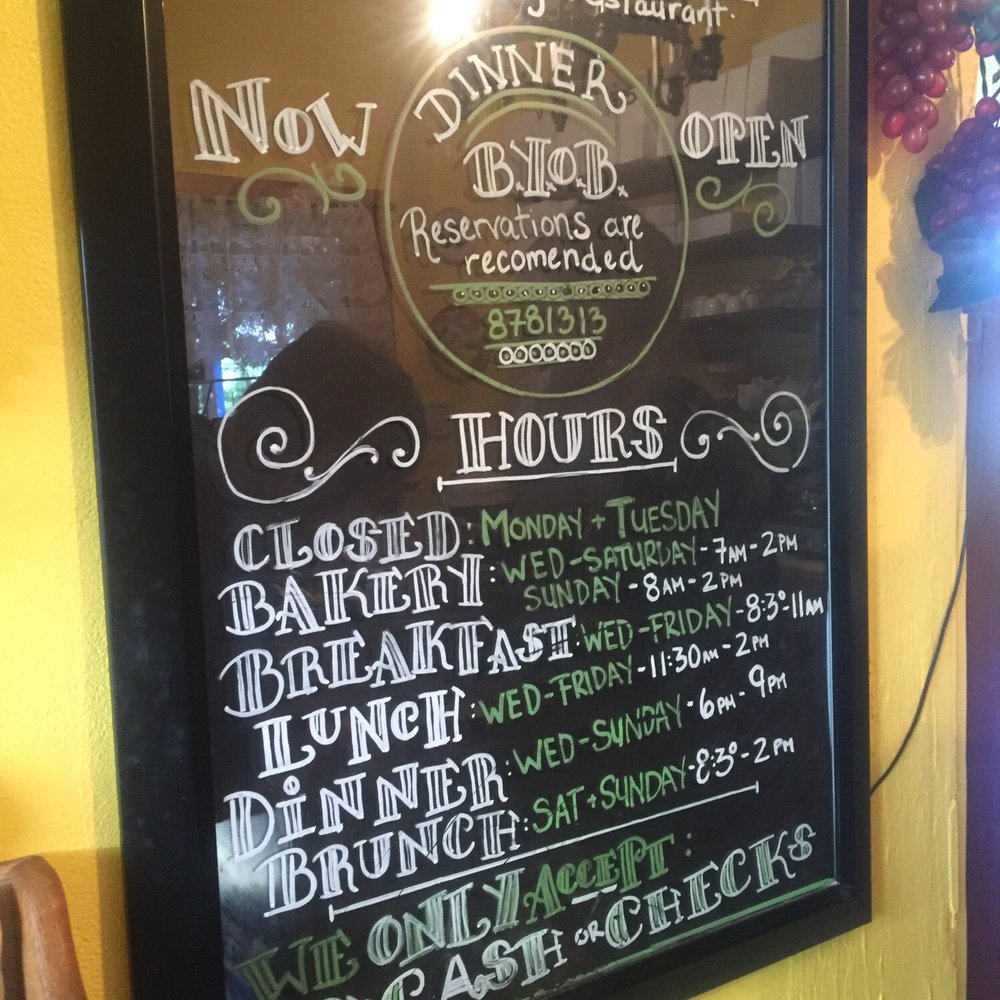 restaurant.
NOW
DINNER
OPEN
B.Y.O.B.
Reservations are
recomended
8781313
HOURS
CLOSED: MONDAY + TUESDAY
BAKERY: WED-SATURDAY-7AM-2PM
SUNDAY-8AM-2PM
BREAKFAST: WED-FRIDAY-8:30-11AM
LUNCH: WED-FRIDAY-11:30AM-2PM
DINNER: WED-SUNDAY-6PM-9PM
BRUNCH: SAT+SUNDAY-8:30-2PM
WE ONLY ACCEPT:
CASH OR CHECKS